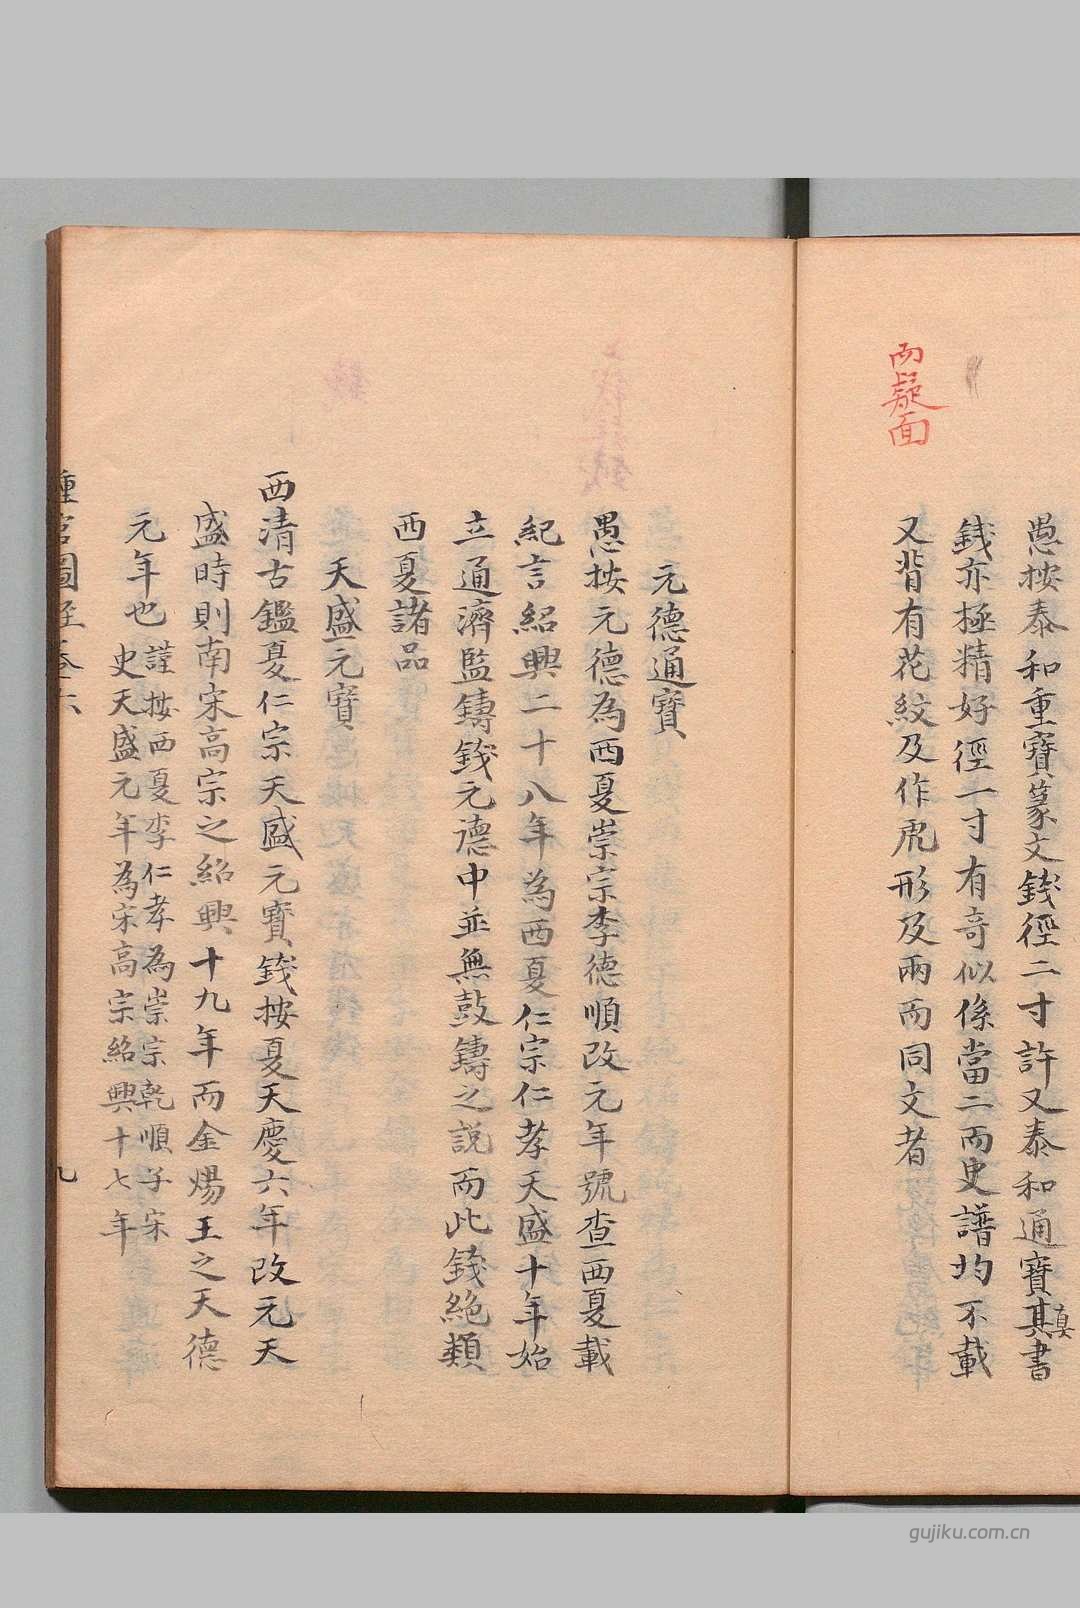 愚按泰和重寶篆文錢徑二寸許又泰和通寶其書
真
錢亦極精好徑一寸有奇似係當二而史譜均不載
又背有花紋及作虎形及兩而同文者
而疑面
元德通寶
愚按元德為西夏崇宗李德順改元年號查西夏載
紀言紹興二十八年為西夏仁宗仁孝天盛十年始
立通濟監鑄錢元德中並無鼓鑄之說而此錢絶類
西夏諸品
天盛元寶
西清古鑑夏仁宗天盛元寶錢按夏天慶六年改元天
盛時則南宋高宗之紹興十九年而金煬王之天德
元年也
謹按西夏李仁孝為崇宗乾順子宋
史天盛元年為宋高宗紹興十七年
九
gujiku.com.cn